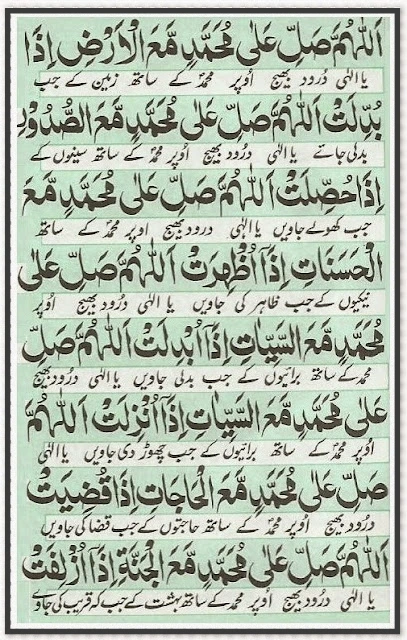 اَللّٰهُمَّ صَلِّ عَلٰى مُحَمَّدٍ مَّعَ الْاَرْضِ اِذَا
یا الٰہی درود بھیج اوپر محمدؐ کے ساتھ زمین کے جب
بُدِّلَتْ اَللّٰهُمَّ صَلِّ عَلٰى مُحَمَّدٍ مَّعَ الصُّدُوْرِ
بدلی جائے یا الٰہی درود بھیج اوپر محمدؐ کے ساتھ سینوں کے
اِذَا حُصِّلَتْ اَللّٰهُمَّ صَلِّ عَلٰى مُحَمَّدٍ مَّعَ
جب کھولے جاویں یا الٰہی درود بھیج اوپر محمدؐ کے ساتھ
الْحَسَنَاتِ اِذَآ اُظْهِرَتْ اَللّٰهُمَّ صَلِّ عَلٰى
نیکیوں کے جب ظاہر کی جاویں یا الٰہی درود بھیج اوپر
مُحَمَّدٍ مَّعَ السَّيِّاٰتِ اِذَآ اُبْدِلَتْ اَللّٰهُمَّ صَلِّ
محمدؐ کے ساتھ برائیوں کے جب بدلی جاویں یا الٰہی درود بھیج
عَلٰى مُحَمَّدٍ مَّعَ السَّيِّاٰتِ اِذَآ اُنْزِلَتْ اَللّٰهُمَّ
اوپر محمدؐ کے ساتھ برائیوں کے جب چھوڑ دی جاویں یا الٰہی
صَلِّ عَلٰى مُحَمَّدٍ مَّعَ الْحَاجَاتِ اِذَا قُضِيَتْ
درود بھیج اوپر محمدؐ کے ساتھ حاجتوں کے جب قضا کی جاویں
اَللّٰهُمَّ صَلِّ عَلٰى مُحَمَّدٍ مَّعَ الْجَنَّةِ اِذَآ اُزْلِفَتْ
یا الٰہی درود بھیج اوپر محمدؐ کے ساتھ بہشت کے جب کہ قریب کی جاوے